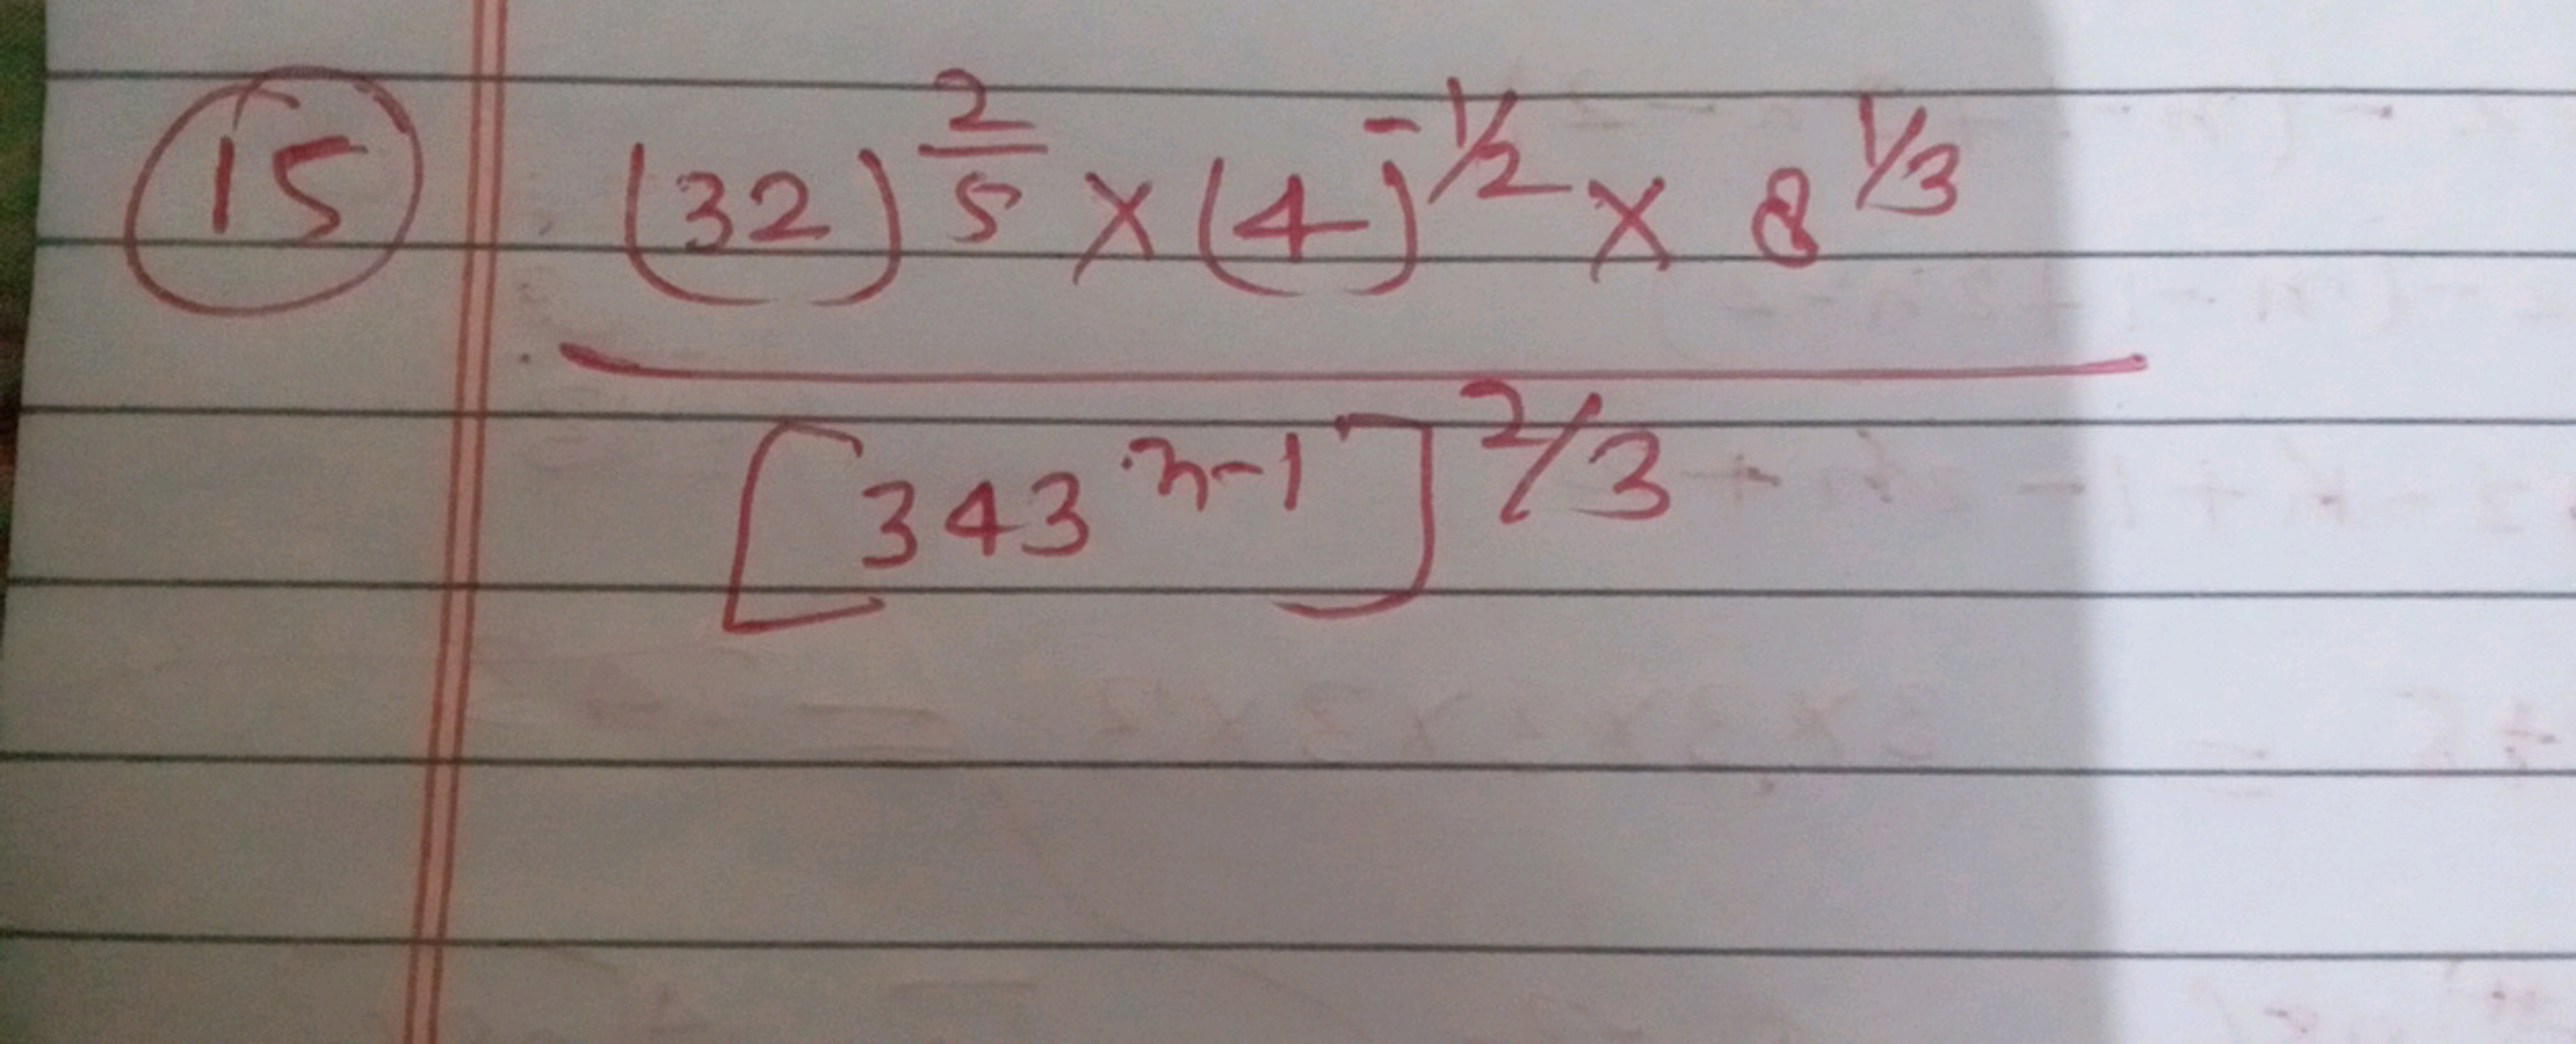 15 (32)^{2/5} × (4)^{-1/2} × 8^{1/3}
[343^{n-1}]^{2/3}